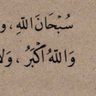 سُبْحَانَ اللّٰهِ، وَ
وَاللّٰهُ أَكْبَرُ، وَلَا